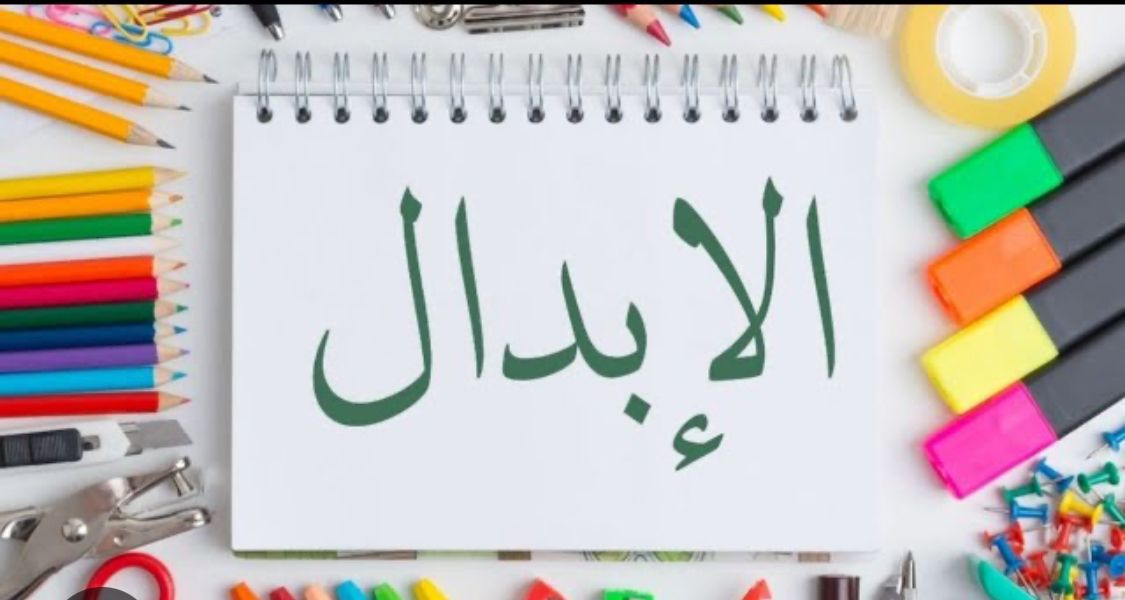 الإبدال